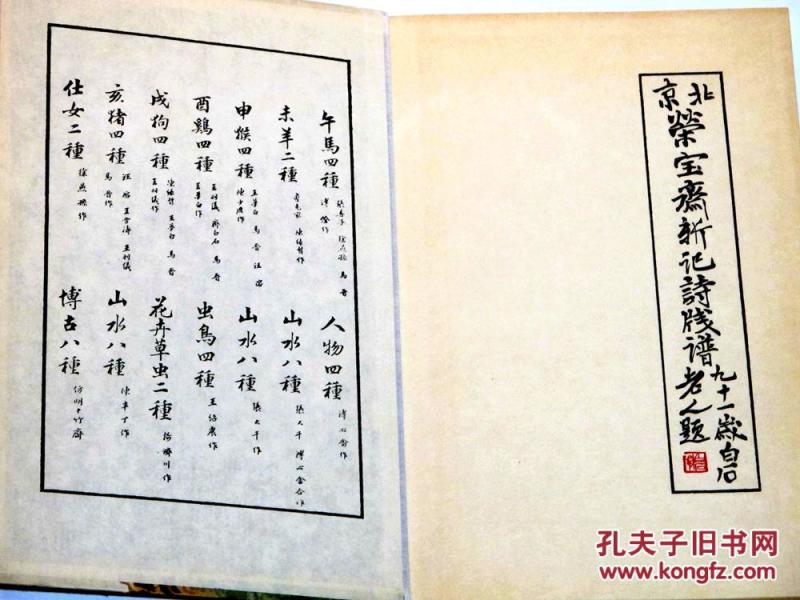 北京
榮宝齋新记詩牋谱
九十一歲白石
老人題
午馬四種 張善子 徐燕孫 馬晋
溥佺作
人物四種 溥心畬作
未羊二種 陳緣督作
山水八種 張大千 溥心畬合作
申猴四種 王夢白 馬晋 汪溶
陳少鹿作
山水八種 張大千作
酉鷄四種 王羽儀 齊白石 馬晋
王夢白作
虫鳥四種 王作
戌狗四種 陳緣督 王夢白 馬晋
王羽儀作
花卉草虫二種 川作
亥猪四種 汪溶 王雪涛 王羽儀
馬晋作
山水八種 陳半丁作
仕女二種 徐燕孫作
博古八種 仿明十竹齋
孔夫子旧书网
www.kongfz.com